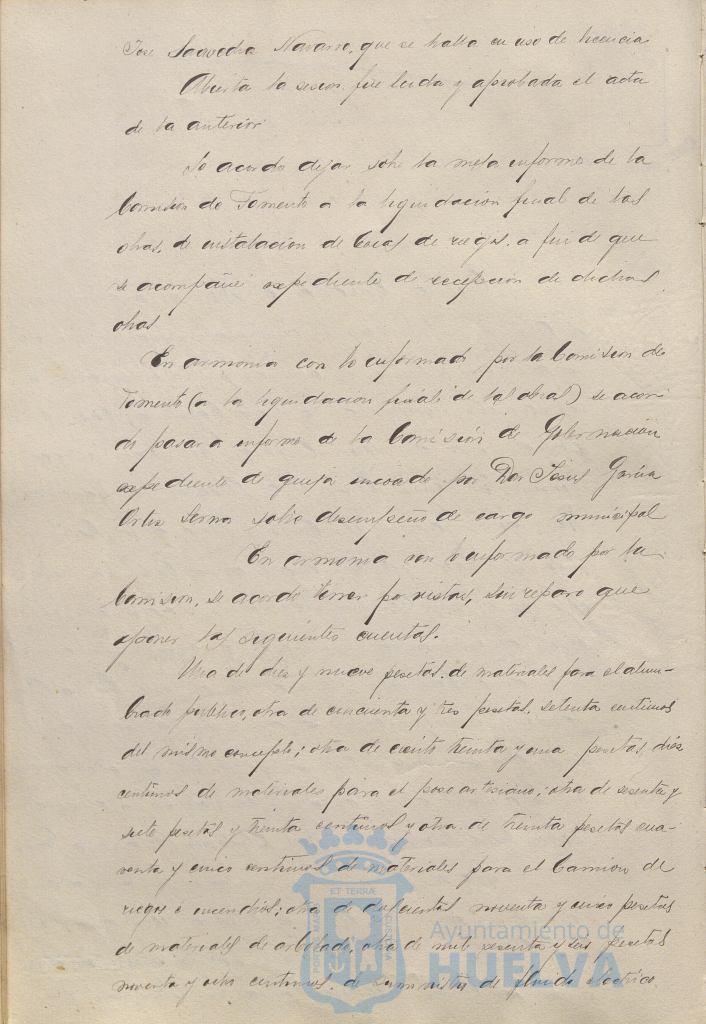 Jose Saavedra Navarro, que se halla en uso de licencia
Abierta la sesion fue leida y aprobada el acta
de la anterior
Se acordo dejar sobre la mesa informe de la
Comision de Fomento a la liquidacion final de las
obras de instalacion de bocas de riegos, a fin de que
se acompañe expediente de recepcion de dichas
obras
En armonia con lo informado por la Comision de
Fomento (a la liquidacion final de tal obra) se acor-
do pasar a informe de la Comisión de Gobernación
expediente de queja incoado por Don Jesus Garcia
Ortiz Serna sobre desempeño de cargo municipal
En armonia con lo informado por la
Comision, se acordo tener por vistas, sin reparo que
oponer las siguientes cuentas.
Una de diez y nueve pesetas, de materiales para el alum-
brado publico, otra de cincuenta y tres pesetas, setenta centimos
del mismo concepto; otra de ciento treinta y una pesetas diez
centimos de materiales para el pozo artesiano; otra de sesenta y
siete pesetas y treinta centimos y otra de treinta pesetas cua-
renta y cinco centimos de materiales para el Camion de
riegos e incendios; otra de doscientas noventa y cinco pesetas
de materiales de arbolado, otra de mil sesenta y seis pesetas
noventa y ocho centimos, de suministro de fluido electrico
ET TERRÆ
Ayuntamiento de
HUELVA